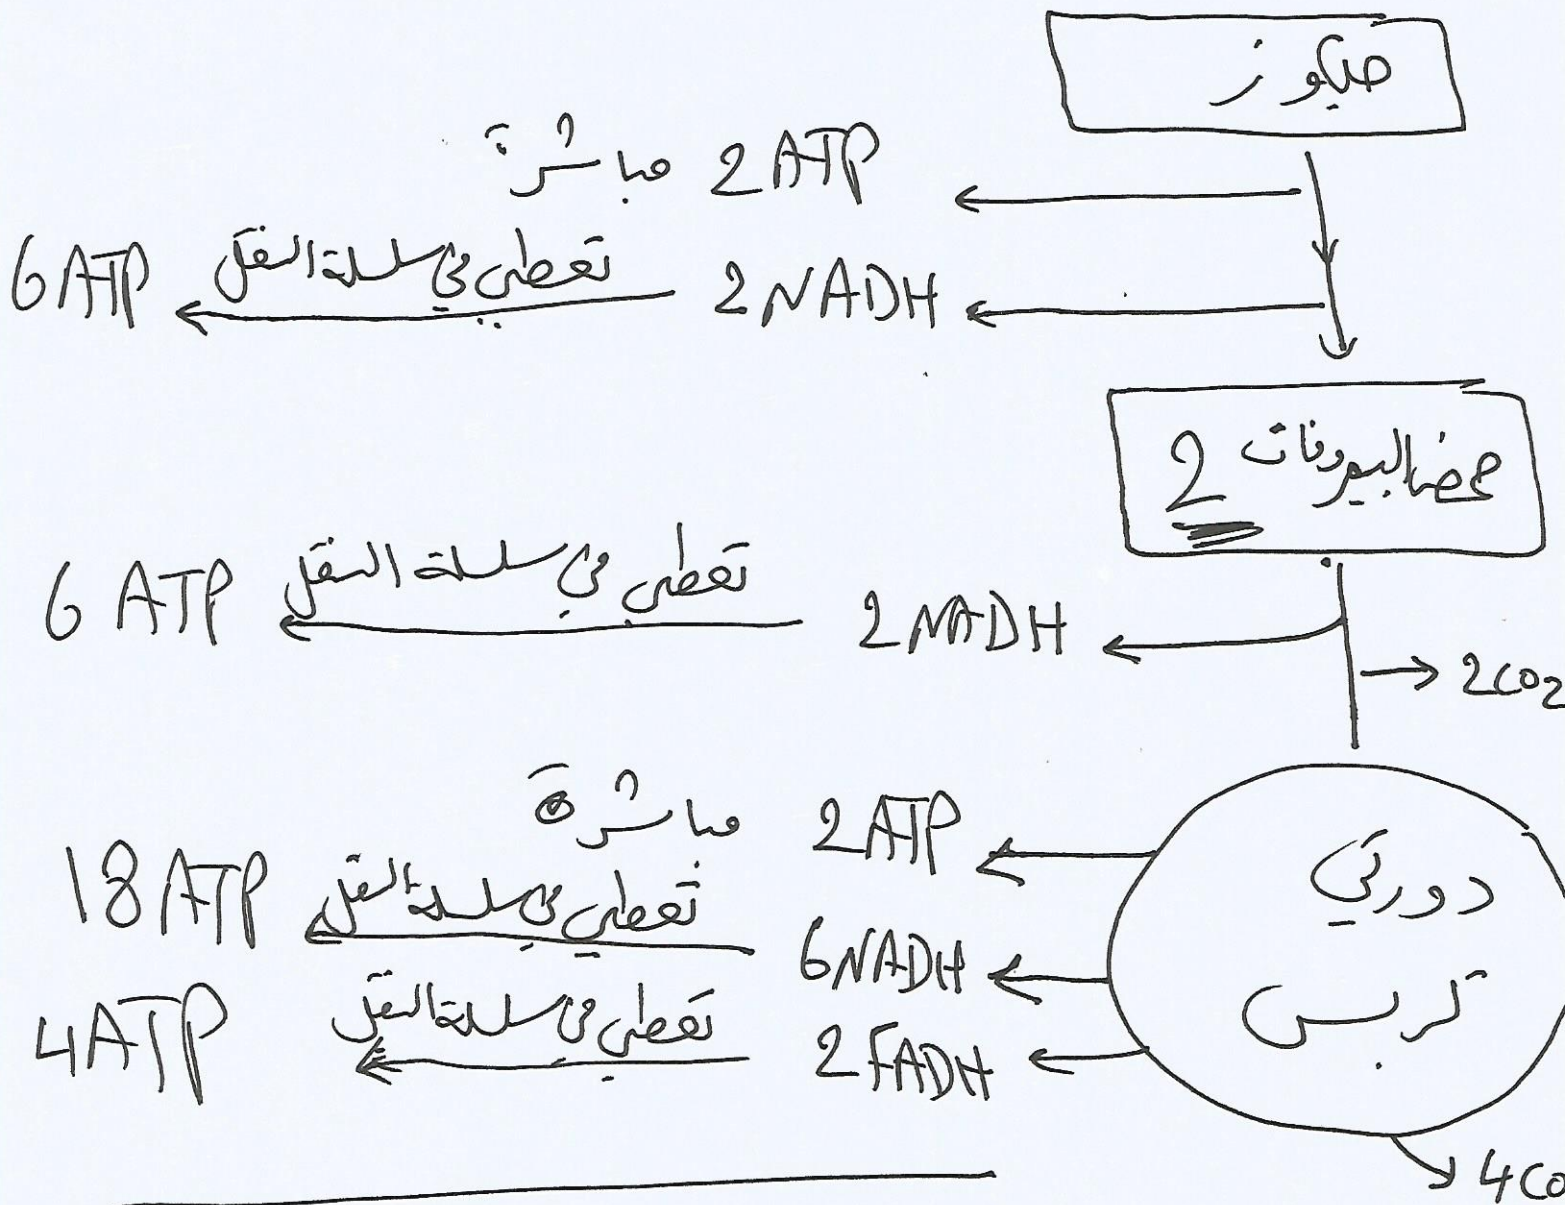 جلوكوز
2ATP مباشرة
2NADH تعطي في سلسلة النقل 6ATP
2 حمض البيروفات
2NADH تعطي في سلسلة النقل 6 ATP
2CO2
دورتي
كربس
2ATP مباشرة
6NADH تعطي في سلسلة النقل 18ATP
2FADH تعطي في سلسلة النقل 4ATP
4CO